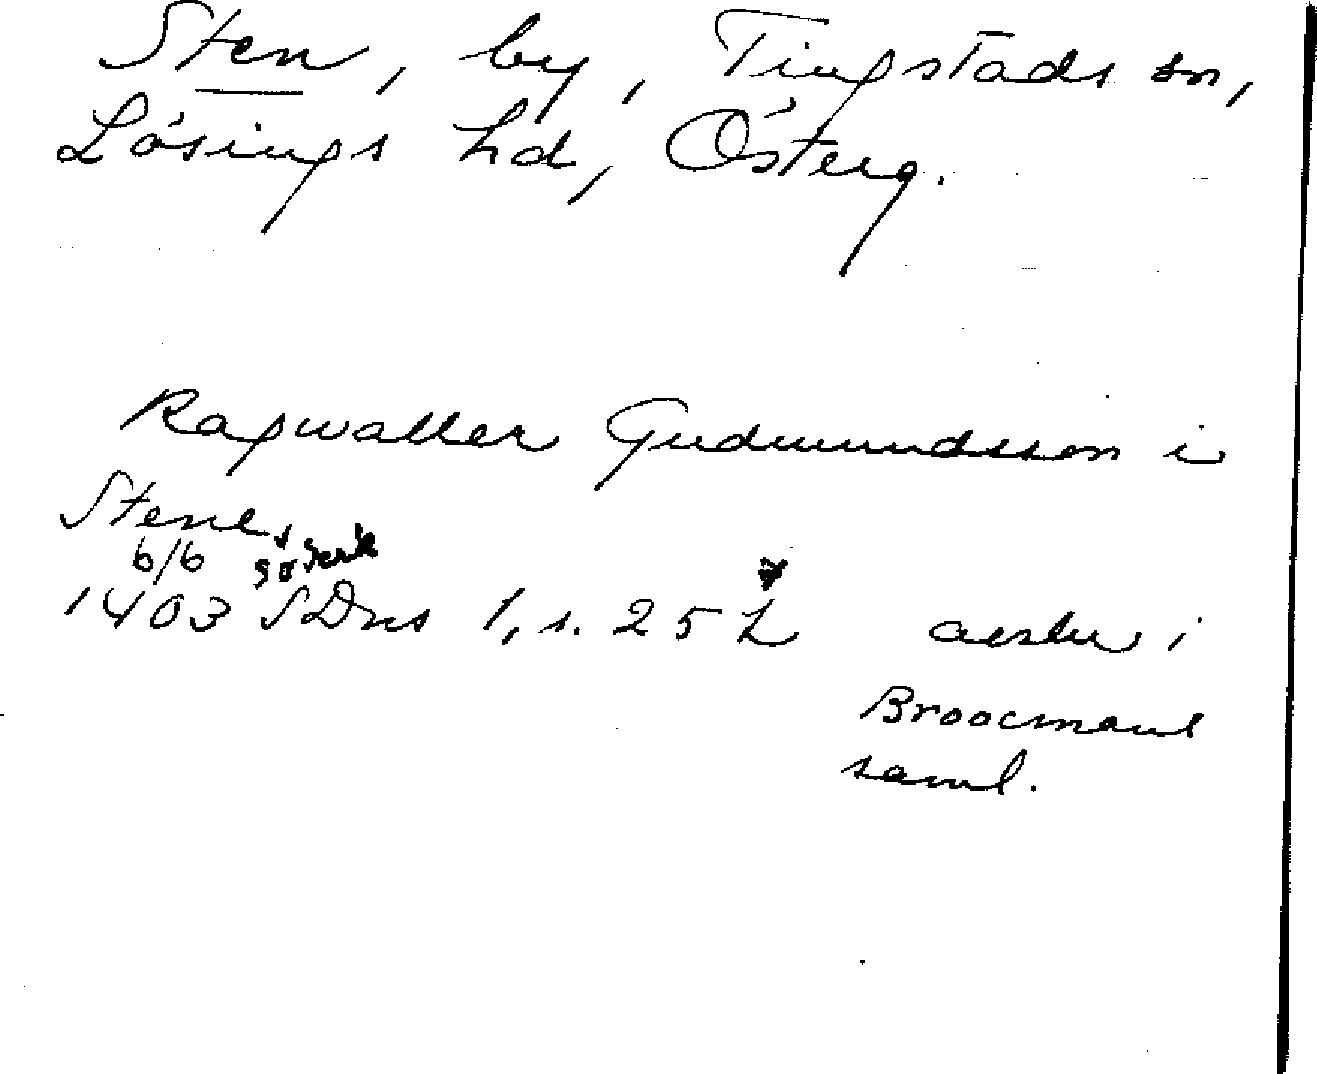 Sten, by, Tingstads sn,
Lösings hd, Österg.
Ragwalter Gudmundsson i
Stene
6/6
1403 SDns 1, s. 25
Broocmans
saml.